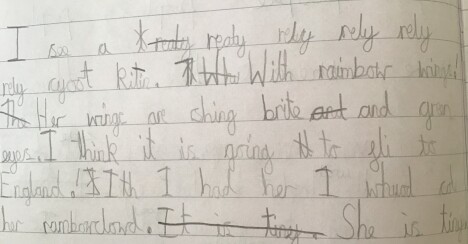 I see a ready rely rely rely
rely cyoot kitin. With rainbow wings!
Her wings are shing brite and gren
eyes. I think it is going to gli to
England! If I had her I whud
her rambowclowd. It is tiney She is tiney